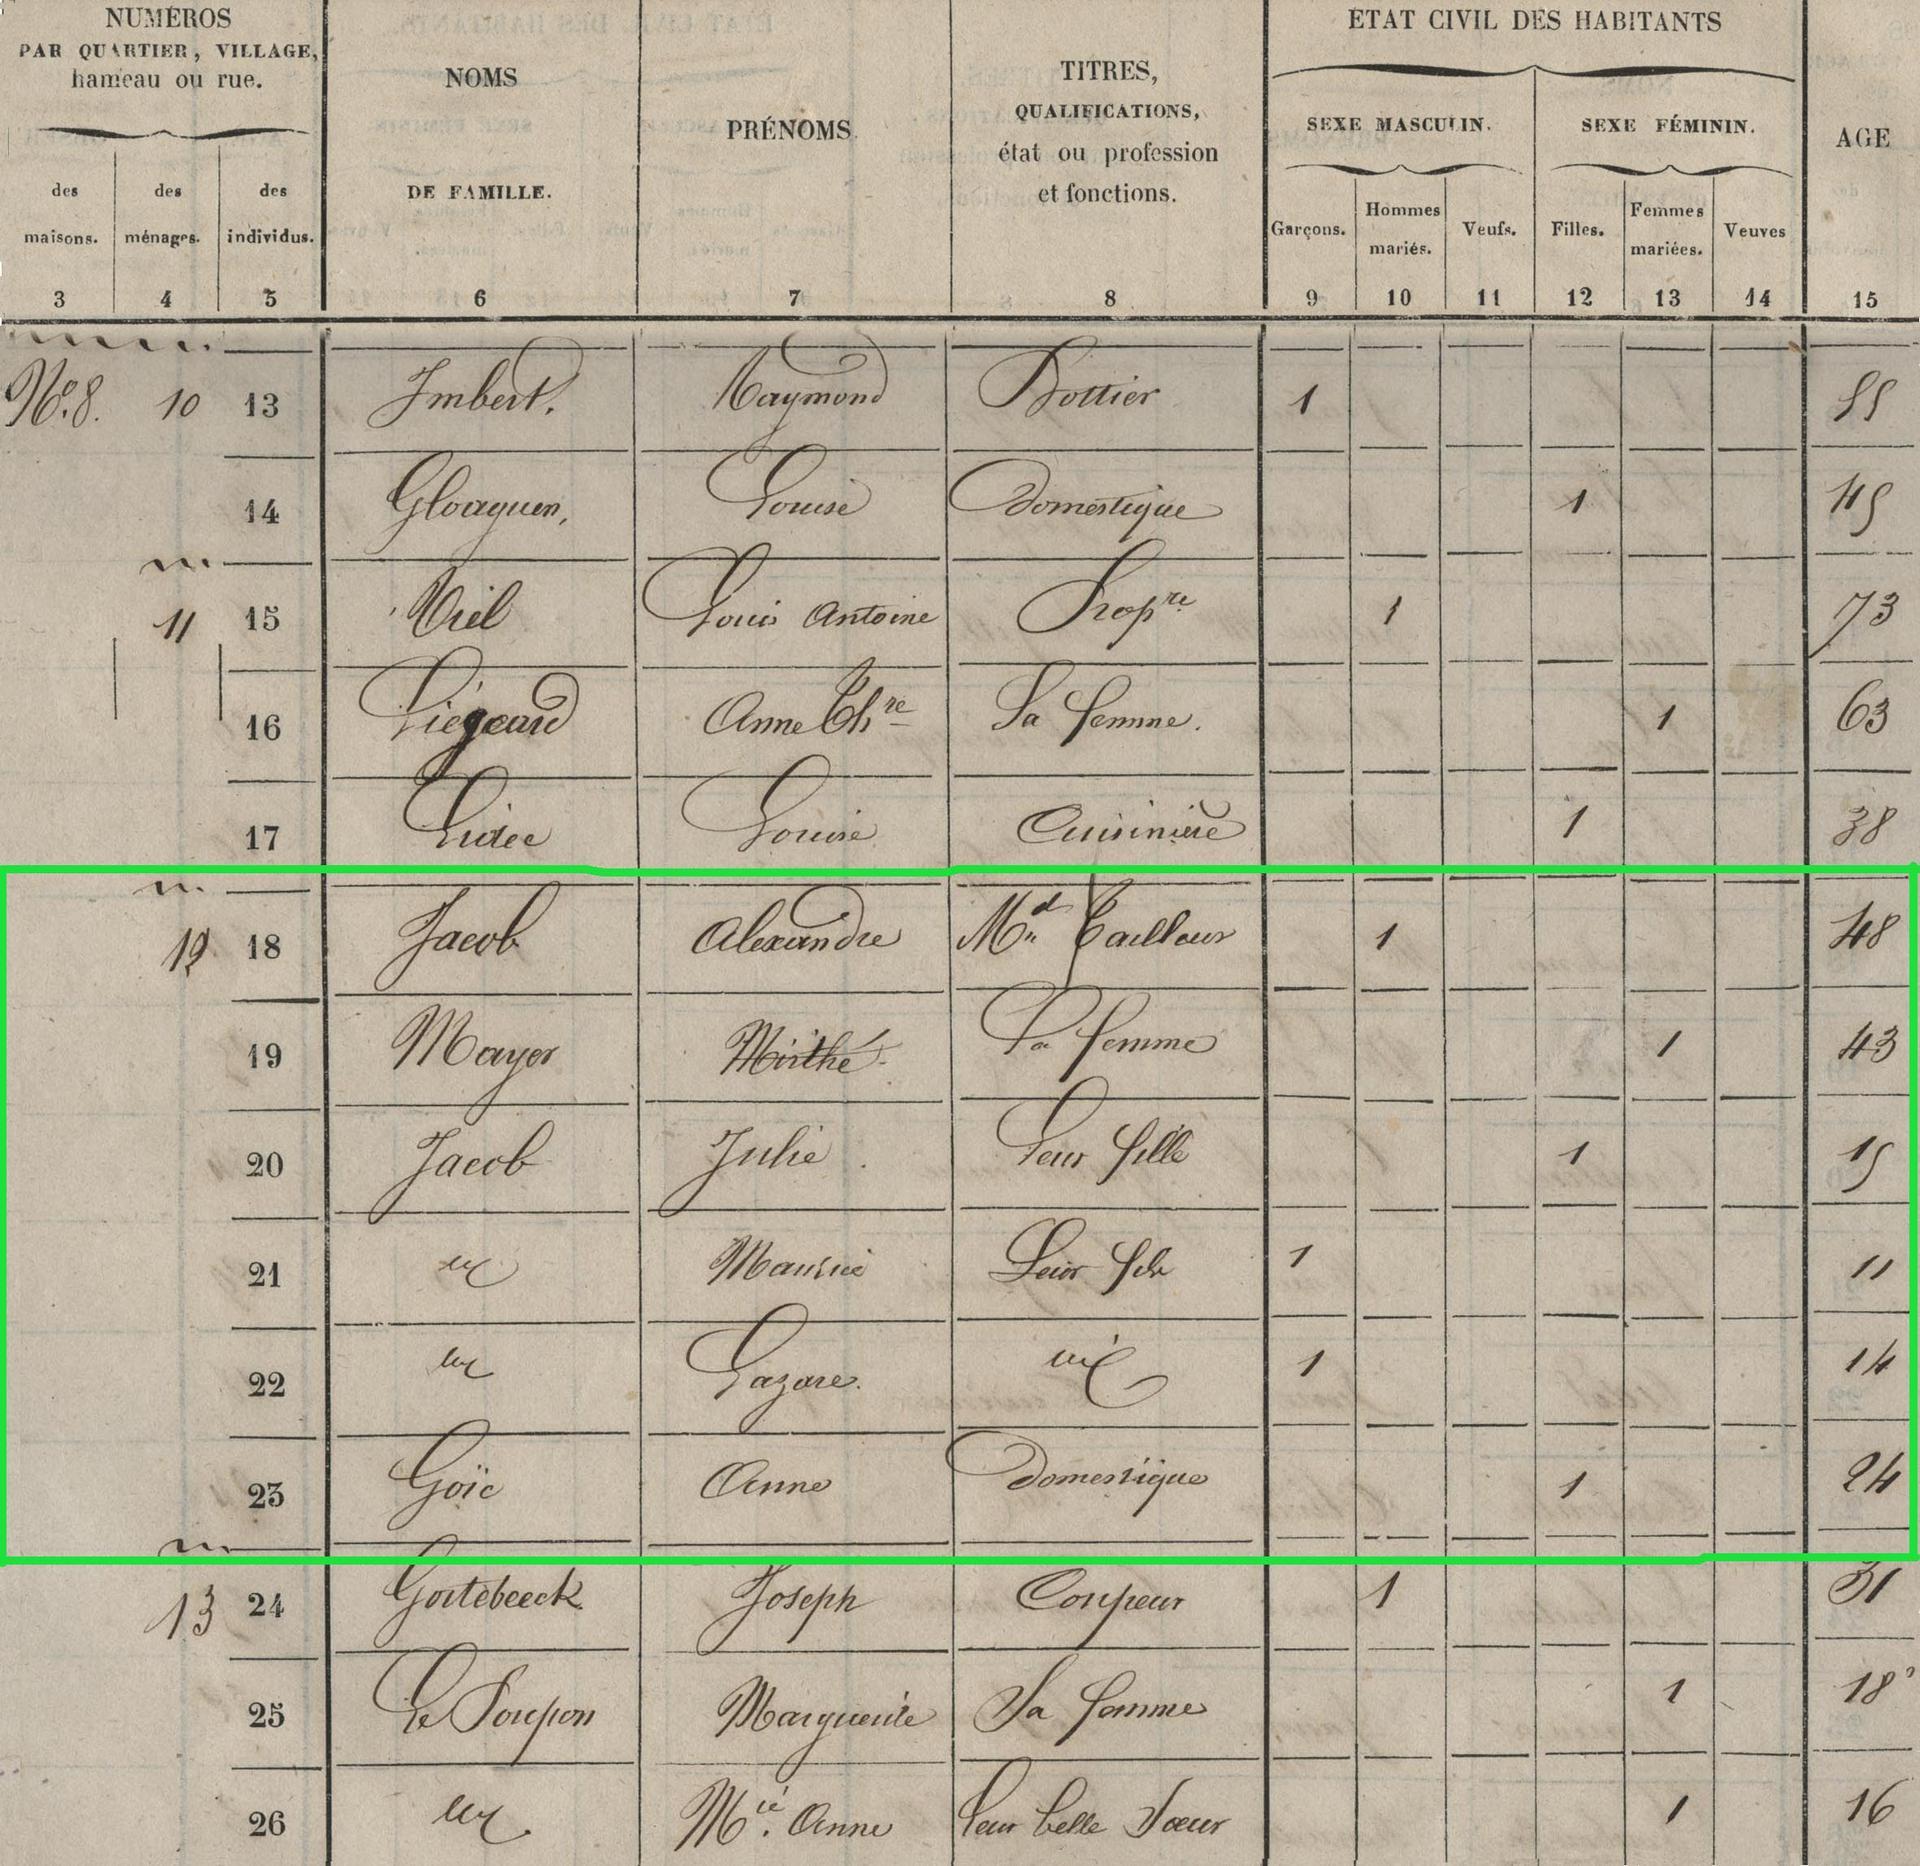 NUMÉROS
PAR QUARTIER, VILLAGE,
hameau ou rue.
des maisons.
des ménages.
des individus.
NOMS
DE FAMILLE.
PRÉNOMS
TITRES,
QUALIFICATIONS,
état ou profession
et fonctions.
ETAT CIVIL DES HABITANTS
SEXE MASCULIN.
SEXE FÉMININ.
Garçons.
Hommes mariés.
Veufs.
Filles.
Femmes mariées.
Veuves
AGE
3 4 5 6 7 8 9 10 11 12 13 14 15
No. 8. 10 13 Imbert. Raymond Bottier 1 55
14 Gloaguen, Louise domestique 1 45
11 15 Viel Louis Antoine Propre 1 73
16 Liégeard Anne Thre Sa femme. 1 63
17 Lidec Louise Cuisinière 1 38
12 18 Jacob Alexandre Md Tailleur 1 48
19 Mayer Mirthé Sa femme 1 43
20 Jacob Julie Leur fille 1 15
21 Maurice Leur fils 1 11
22 Lazare. 1 14
23 Goïc Anne domestique 1 24
13 24 Gortebeeck Joseph Coupeur 1 31
25 Le Soupon Marguerite Sa femme 1 18
26 Mie. Anne Leur belle Sœur 1 16